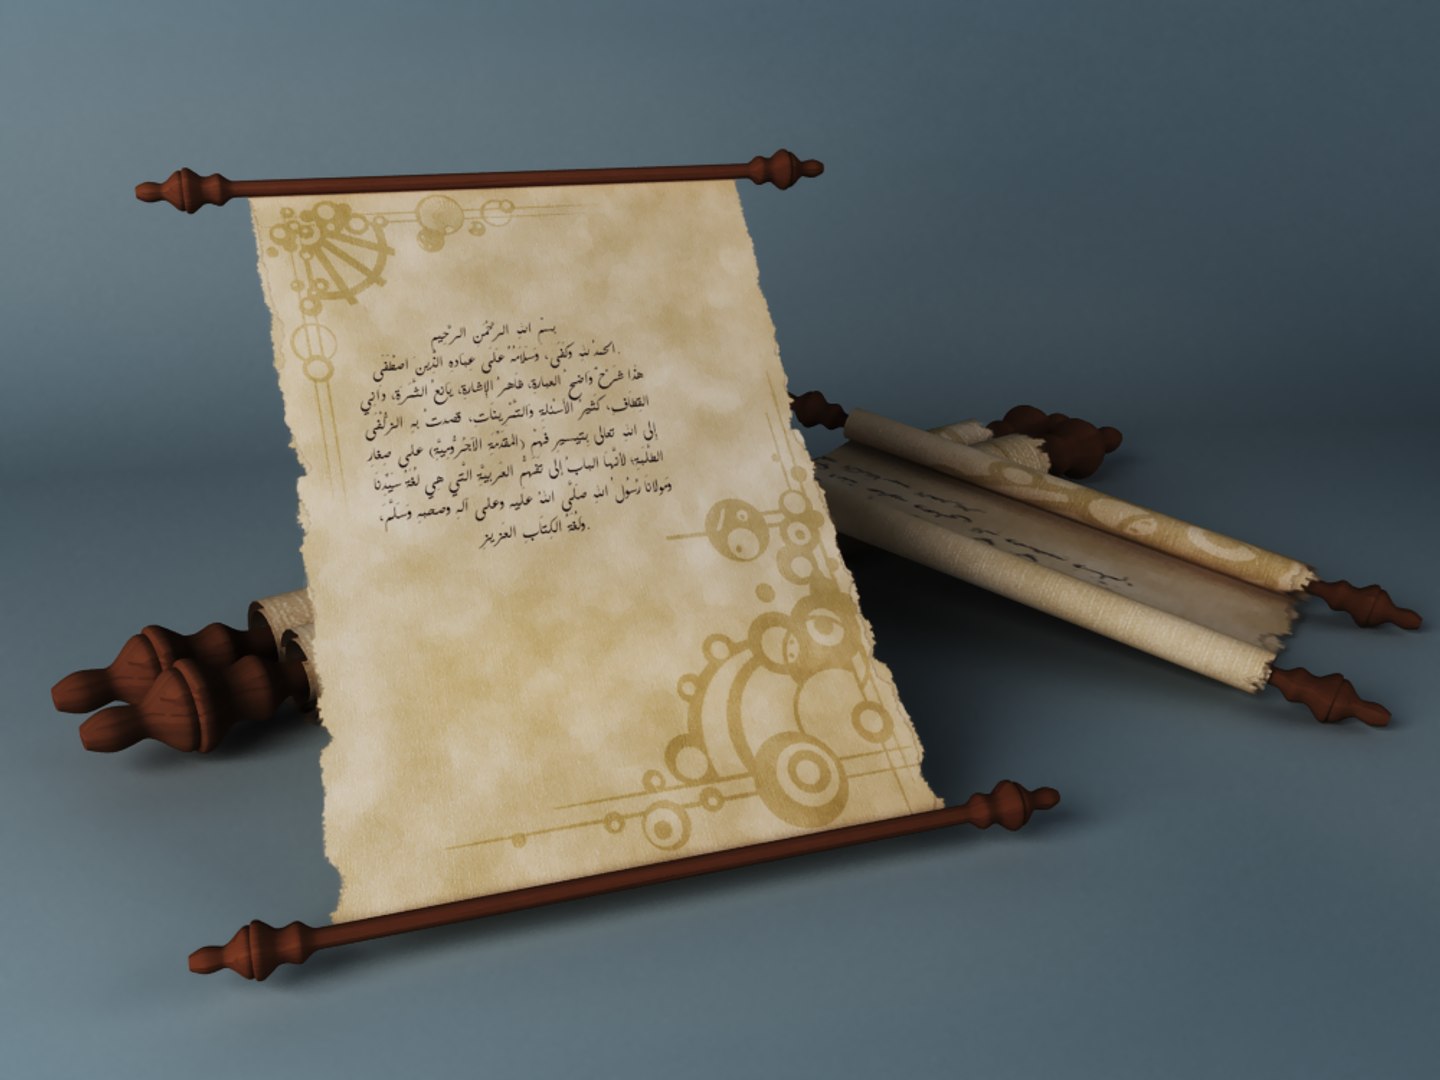 بسم الله الرحمن الرحيم
الحمد لله وكفى، وسلامه على عباده الذين اصطفى.
هذا شرح واضح العبارة، ظاهر الإشارة، يانع الثمرة، داني
القطاف، كثير الأسئلة والتمرينات، قصدت به الزلفى
إلى الله تعالى بتيسير فهم (المقدمة الآجرومية) على صغار
الطلبة؛ لأنها الباب إلى تفهم العربية التي هي لغة سيدنا
ومولانا رسول الله صلى الله عليه وعلى آله وصحبه وسلم،
ولغة الكتاب العزيز.